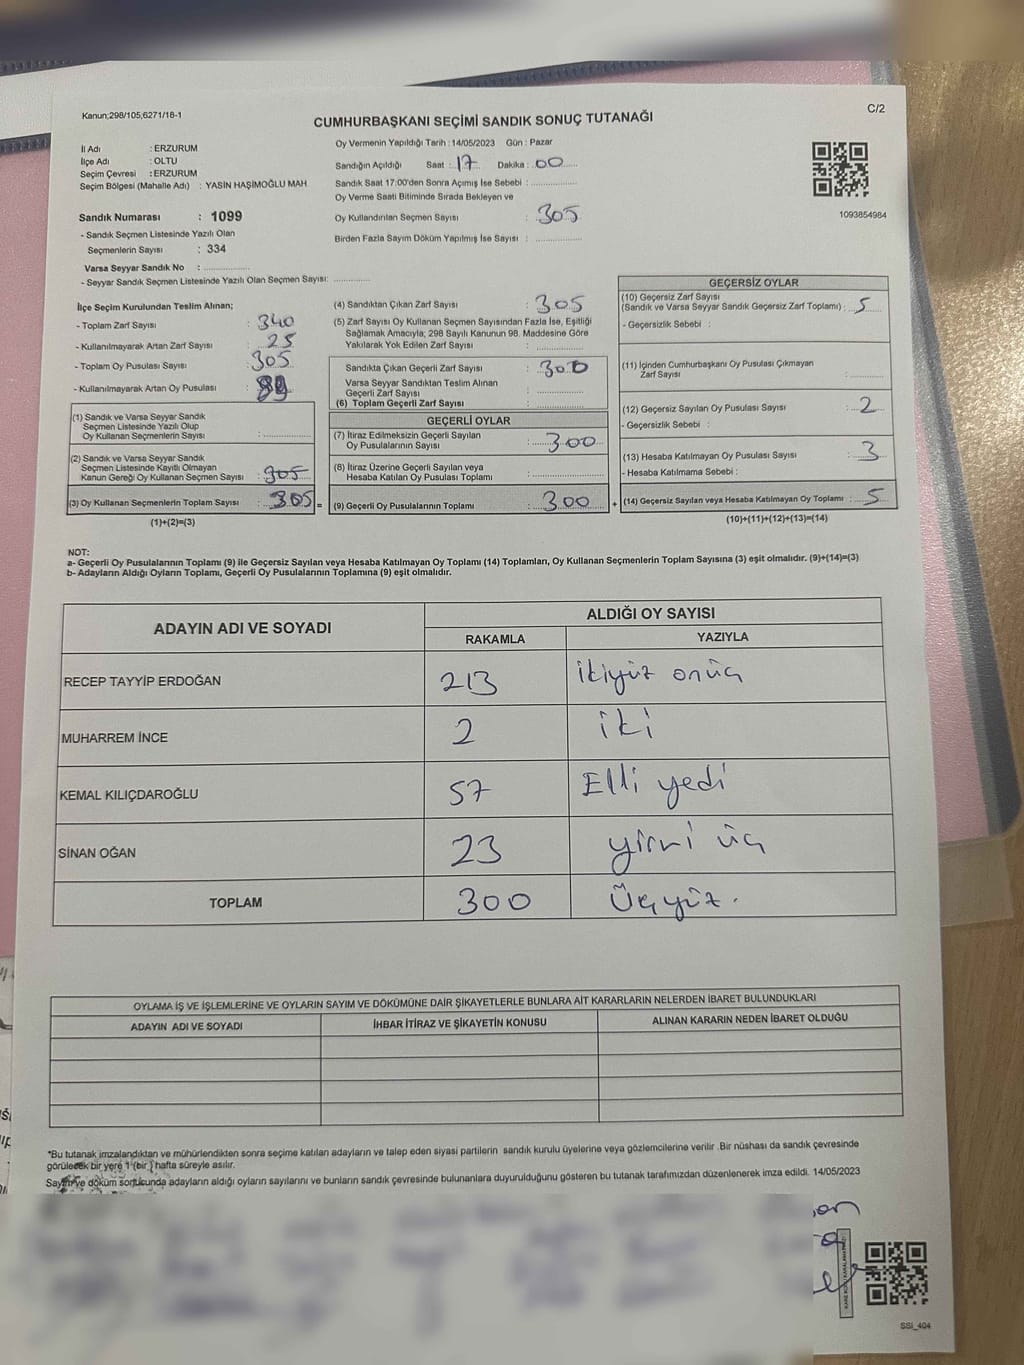 Kanun;298/105,6271/18-1
C/2
CUMHURBAŞKANI SEÇİMİ SANDIK SONUÇ TUTANAĞI
İl Adı : ERZURUM
İlçe Adı : OLTU
Seçim Çevresi : ERZURUM
Seçim Bölgesi (Mahalle Adı) : YASİN HAŞİMOĞLU MAH
Sandık Numarası : 1099
- Sandık Seçmen Listesinde Yazılı Olan
Seçmenlerin Sayısı : 334
Varsa Seyyar Sandık No : ..............
- Seyyar Sandık Seçmen Listesinde Yazılı Olan Seçmen Sayısı: ............
Oy Vermenin Yapıldığı Tarih : 14/05/2023 Gün : Pazar
Sandığın Açıldığı Saat : 17 Dakika : 00
Sandık Saat 17:00'den Sonra Açımış İse Sebebi : ..............
Oy Verme Saati Bitiminde Sırada Bekleyen ve
Oy Kullandırılan Seçmen Sayısı : 305
Birden Fazla Sayım Döküm Yapılmış İse Sayısı : ..............
1093854984
İlçe Seçim Kurulundan Teslim Alınan;
- Toplam Zarf Sayısı : 340
- Kullanılmayarak Artan Zarf Sayısı : 25
- Toplam Oy Pusulası Sayısı : 305
- Kullanılmayarak Artan Oy Pusulası :
(1) Sandık ve Varsa Seyyar Sandık
Seçmen Listesinde Yazılı Olup
Oy Kullanan Seçmenlerin Sayısı : ..............
(2) Sandık ve Varsa Seyyar Sandık
Seçmen Listesinde Kayıtlı Olmayan
Kanun Gereği Oy Kullanan Seçmen Sayısı : 305
(3) Oy Kullanan Seçmenlerin Toplam Sayısı : 305 =
(1)+(2)=(3)
(4) Sandıktan Çıkan Zarf Sayısı : 305
(5) Zarf Sayısı Oy Kullanan Seçmen Sayısından Fazla İse, Eşitliği
Sağlamak Amacıyla; 298 Sayılı Kanunun 98. Maddesine Göre
Yakılarak Yok Edilen Zarf Sayısı : ..............
Sandıkta Çıkan Geçerli Zarf Sayısı : 300
Varsa Seyyar Sandıktan Teslim Alınan
Geçerli Zarf Sayısı : ..............
(6) Toplam Geçerli Zarf Sayısı : ..............
GEÇERLİ OYLAR
(7) İtiraz Edilmeksizin Geçerli Sayılan
Oy Pusulalarının Sayısı : 300
(8) İtiraz Üzerine Geçerli Sayılan veya
Hesaba Katılan Oy Pusulası Toplamı : ..............
(9) Geçerli Oy Pusulalarının Toplamı : 300 +
GEÇERSİZ OYLAR
(10) Geçersiz Zarf Sayısı
(Sandık ve Varsa Seyyar Sandık Geçersiz Zarf Toplamı) : 5
- Geçersizlik Sebebi :
(11) İçinden Cumhurbaşkanı Oy Pusulası Çıkmayan
Zarf Sayısı : ..............
(12) Geçersiz Sayılan Oy Pusulası Sayısı : 2
- Geçersizlik Sebebi :
(13) Hesaba Katılmayan Oy Pusulası Sayısı : 3
- Hesaba Katılmama Sebebi :
(14) Geçersiz Sayılan veya Hesaba Katılmayan Oy Toplamı : 5
(10)+(11)+(12)+(13)=(14)
NOT:
a- Geçerli Oy Pusulalarının Toplamı (9) ile Geçersiz Sayılan veya Hesaba Katılmayan Oy Toplamı (14) Toplamları, Oy Kullanan Seçmenlerin Toplam Sayısına (3) eşit olmalıdır. (9)+(14)=(3)
b- Adayların Aldığı Oyların Toplamı, Geçerli Oy Pusulalarının Toplamına (9) eşit olmalıdır.
ADAYIN ADI VE SOYADI ALDIĞI OY SAYISI
RAKAMLA YAZIYLA
RECEP TAYYİP ERDOĞAN 213 ikiyüz onüç
MUHARREM İNCE 2 iki
KEMAL KILIÇDAROĞLU 57 Elli yedi
SİNAN OĞAN 23 yirmi üç
TOPLAM 300 Üçyüz.
OYLAMA İŞ VE İŞLEMLERİNE VE OYLARIN SAYIM VE DÖKÜMÜNE DAİR ŞİKAYETLERLE BUNLARA AİT KARARLARIN NELERDEN İBARET BULUNDUKLARI
ADAYIN ADI VE SOYADI İHBAR İTİRAZ VE ŞİKAYETİN KONUSU ALINAN KARARIN NEDEN İBARET OLDUĞU
*Bu tutanak imzalandıktan ve mühürlendikten sonra seçime katılan adayların ve talep eden siyasi partilerin sandık kurulu üyelerine veya gözlemcilerine verilir .Bir nüshası da sandık çevresinde
görülecek bir yere 1 (bir ) hafta süreyle asılır.
Sayım ve döküm sonucunda adayların aldığı oyların sayılarını ve bunların sandık çevresinde bulunanlara duyurulduğunu gösteren bu tutanak tarafımızdan düzenlenerek imza edildi. 14/05/2023
SSİ_404